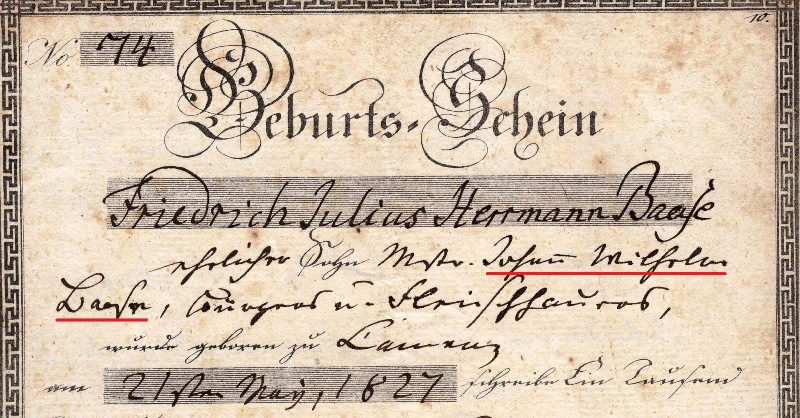 10.
No. 74
Geburts-Schein
Friedrich Julius Herrmann Baase
ehelicher Sohn Mstr. Johann Wilhelm
Baase, Bürgers u. Fleischhauers,
wurde geboren zu Camenz
am 21sten May, 1827 schreibe Ein Tausend